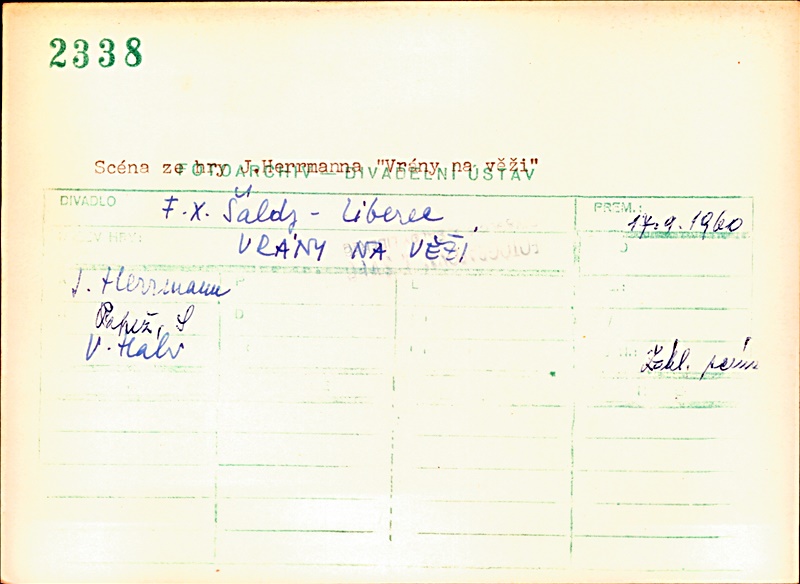 2338
Scéna ze hry J.Herrmanna "Vrány na věži"
FOTOARCHIV – DIVADELNÍ ÚSTAV
DIVADLO F.X. Šaldy – Liberec PREM.: 17.9.1960
VRÁNY NA VĚŽI
J. Herrmann
V. Habr